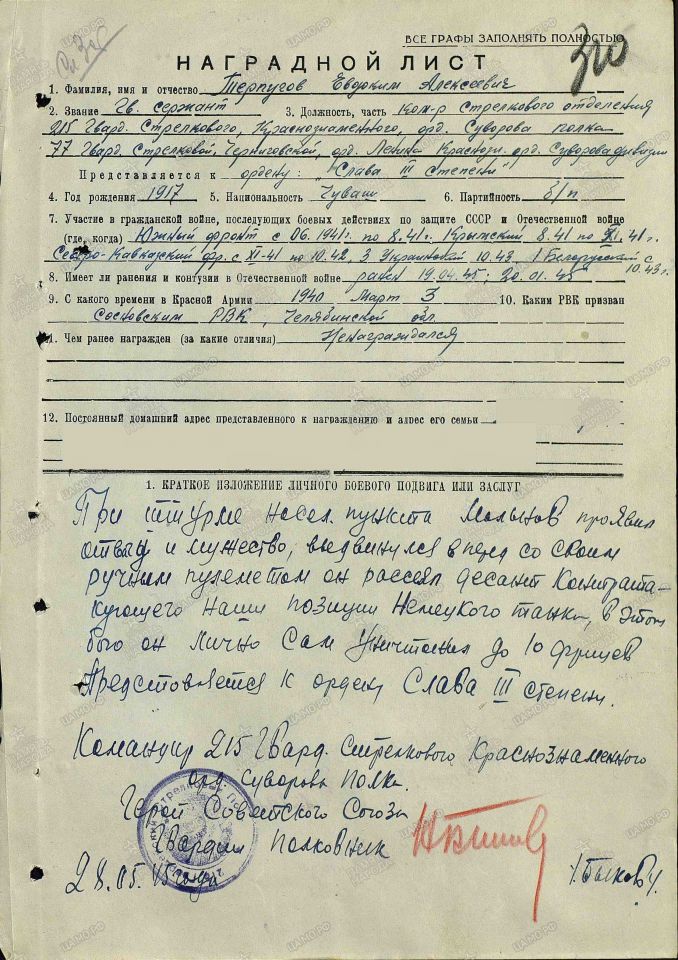 ВСЕ ГРАФЫ ЗАПОЛНЯТЬ ПОЛНОСТЬЮ
НАГРАДНОЙ ЛИСТ
1. Фамилия, имя и отчество Терпугов Евдоким Алексеевич
2. Звание Гв. сержант 3. Должность, часть ком-р стрелкового отделения
215 Гвард. Стрелкового, Краснознаменного, орд. Суворова полка
77 Гвард. Стрелковой, Черниговской, орд. Ленина Краснозн. орд. Суворова дивизии
Представляется к ордену: "Слава III степени"
4. Год рождения 1917 5. Национальность Чуваш 6. Партийность б/п
7. Участие в гражданской войне, последующих боевых действиях по защите СССР и Отечественной войне
(где, когда) Южный фронт с 06.1941г. по 8.41г. Крымский 8.41 по XI.41г.
Северо-Кавказский фр. с XI-41 по 10.42, 3 Украинской 10.43, 1 Белорусский с
10.43г.
8. Имеет ли ранения и контузии в Отечественной войне ранен 19.04.45; 20.01.45
9. С какого времени в Красной Армии 1940 Март 3 10. Каким РВК призван
Сосновским РВК, Челябинской обл.
11. Чем ранее награжден (за какие отличия) Ненаграждался
12. Постоянный домашний адрес представленного к награждению и адрес его семьи
1. КРАТКОЕ ИЗЛОЖЕНИЕ ЛИЧНОГО БОЕВОГО ПОДВИГА ИЛИ ЗАСЛУГ
При штурме насел. пункта проявил
отвагу и мужество, выдвинулся вперед со своим
ручным пулеметом он рассеял десант контрата-
кующего наши позиции Немецкого танка, в этом
бою он лично сам уничтожил до 10 фрицев
Представляется к ордену Слава III степени.
Командир 215 Гвард. Стрелкового Краснознаменного
орд. Суворова Полка.
Герой Советского Союза
Гвардии Полковник
/Быков/.
28.05.45 года